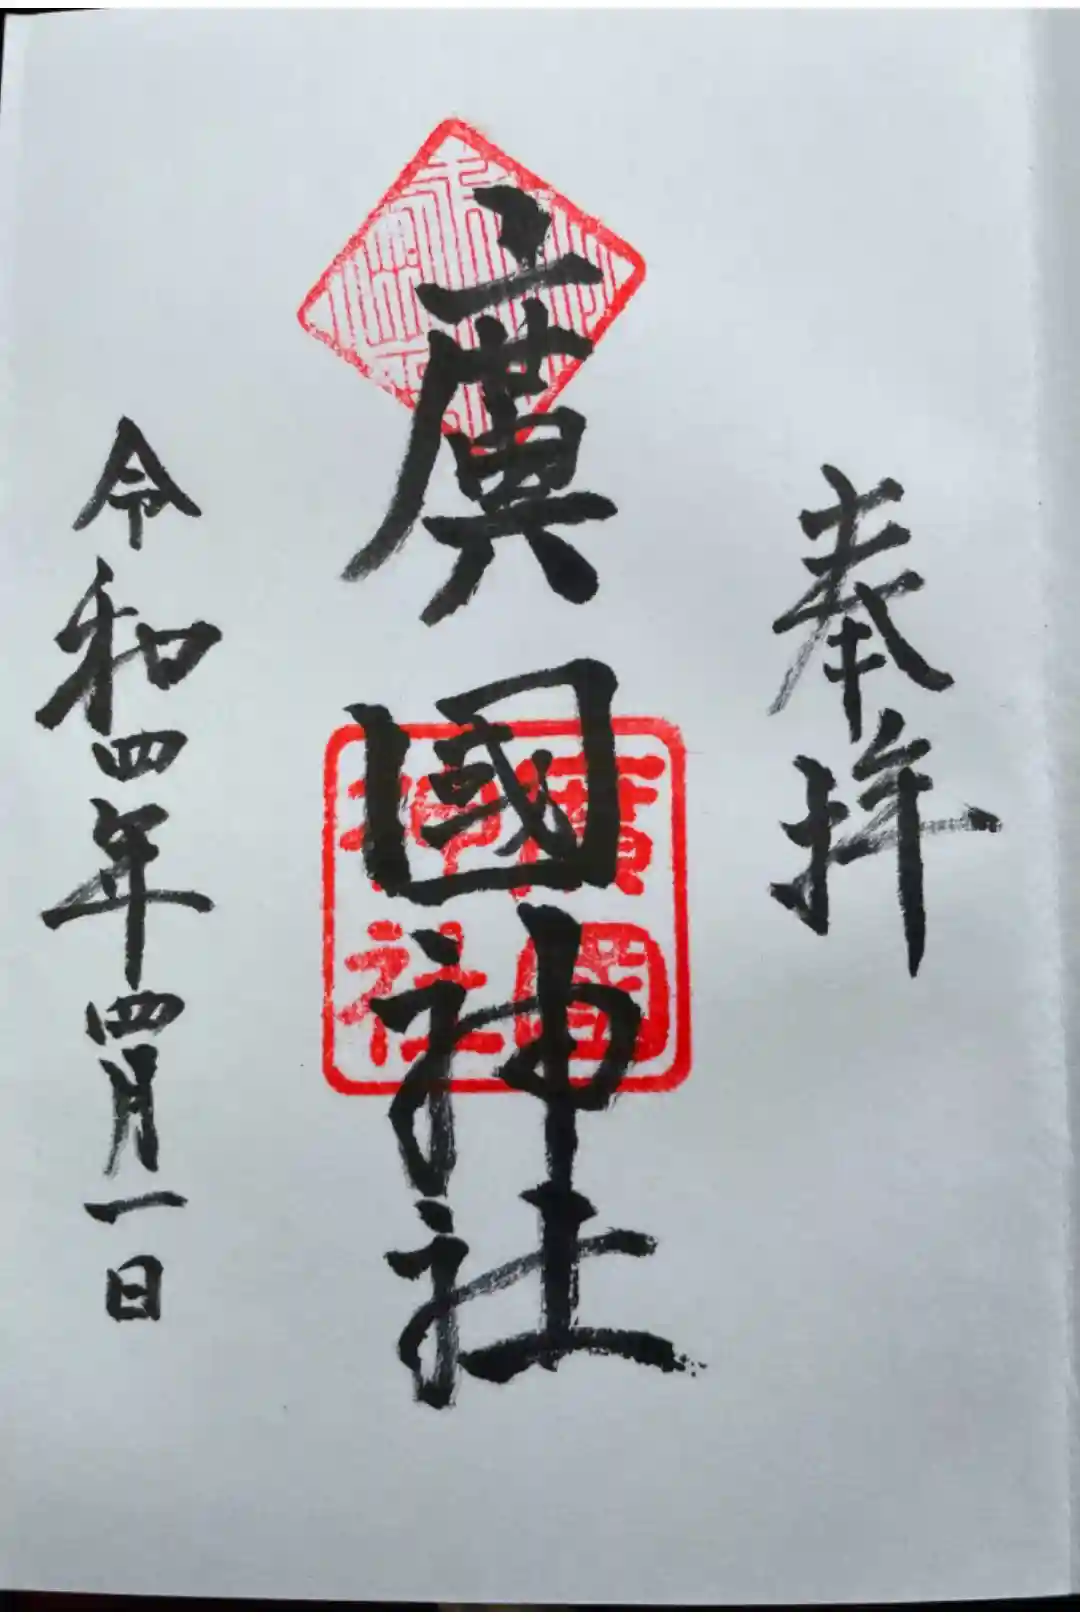 奉拝
廣國神社
令和四年四月一日
廣國神社